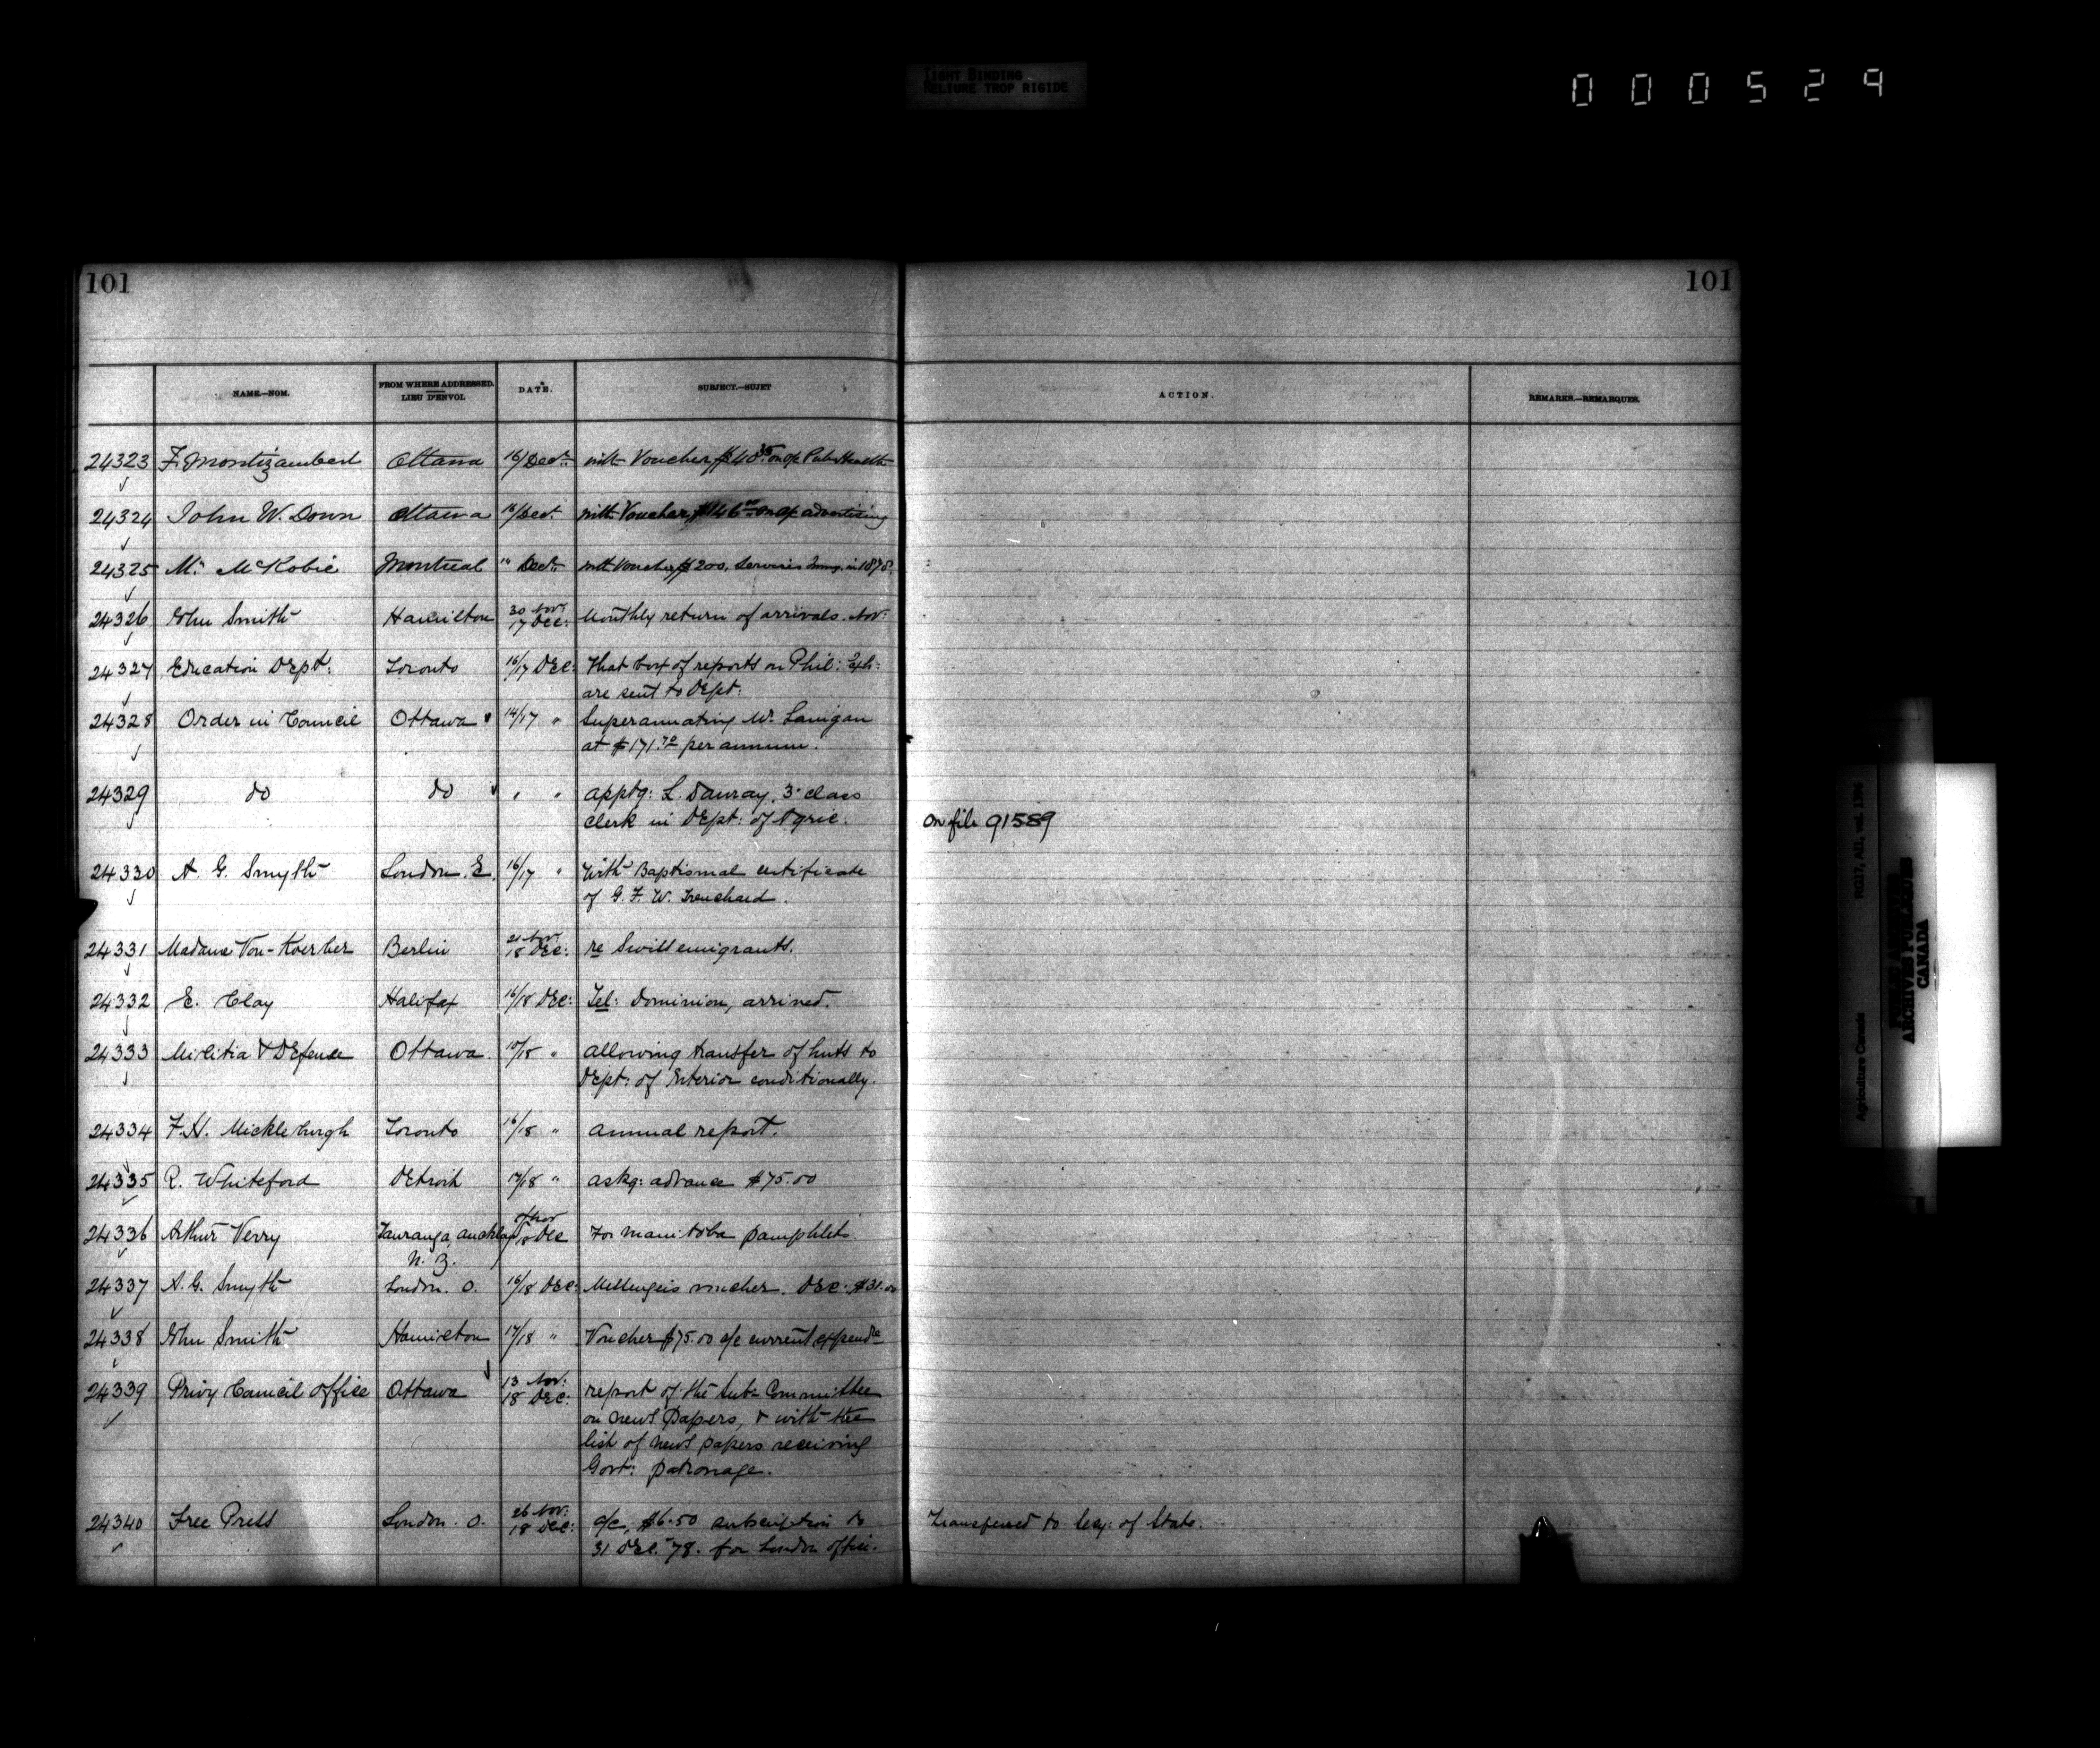 TIGHT BINDING
RELIURE TROP RIGIDE
000529
101 101
NAME.—NOM. FROM WHERE ADDRESSED. LIEU D'ENVOI. DATE. SUBJECT.—SUJET ACTION. REMARKS.—REMARQUES.
24323 F. Montizambert Ottawa 16/Decr. with Voucher $40.35 on a/c Pub. Health
24324 John W. Down Ottawa 16/Dec. with Voucher $146.00 on a/c advertising
24325 Mr. McKobie Montreal " Decr. with Voucher $200, Services in 1878.
24326 John Smith Hamilton 30 Nov: 17 Dec: Monthly return of arrivals. Nov:
24327 Education Dept: Toronto 16/17 Dec: That box of reports on Phil: Exh:
are sent to Dept:
24328 Order in Council Ottawa 14/17 " Superannuating W. Lanigan
at $171.70 per annum.
24329 do do " " apptg: L. Dauray, 3d class
clerk in Dept: of Agric: On file 91589
24330 A. G. Smyth London. E. 16/17 " With Baptismal certificate
of G. F. W. Trenchard.
24331 Madame Von-Koerber Berlin 21 Nov 18 Dec: re Swiss emigrants.
24332 E. Clay Halifax 16/18 Dec: Tel: Dominion, arrived.
24333 Militia & Defence Ottawa. 10/18 " allowing transfer of huts to
Dept: of Interior conditionally.
24334 F.H. Mickleburgh Toronto 16/18 " annual report.
24335 R. Whiteford Detroit 17/18 " askg: advance $75.00
24336 Arthur Verry Tauranga, Nov 18 Dec For Manitoba pamphlets.
N. Z.
24337 A. G. Smyth London. O. 16/18 Dec: Messengers voucher. Dec: $31.00
24338 John Smith Hamilton 17/18 " Voucher $75.00 a/c current expendre
24339 Privy Council office Ottawa 13 Nov: 18 Dec: report of the Sub-Committee
on news papers, & with the
list of news papers receiving
Govt: patronage.
24340 Free Press London. O. 26 Nov: 18 Dec: a/c, $6.50 subscription to Transferred to Secy: of State.
31 Dec. '78. for London office.
RG17, AII, vol. 1396
Agriculture Canada
PUBLIC ARCHIVES
ARCHIVES PUBLIQUES
CANADA